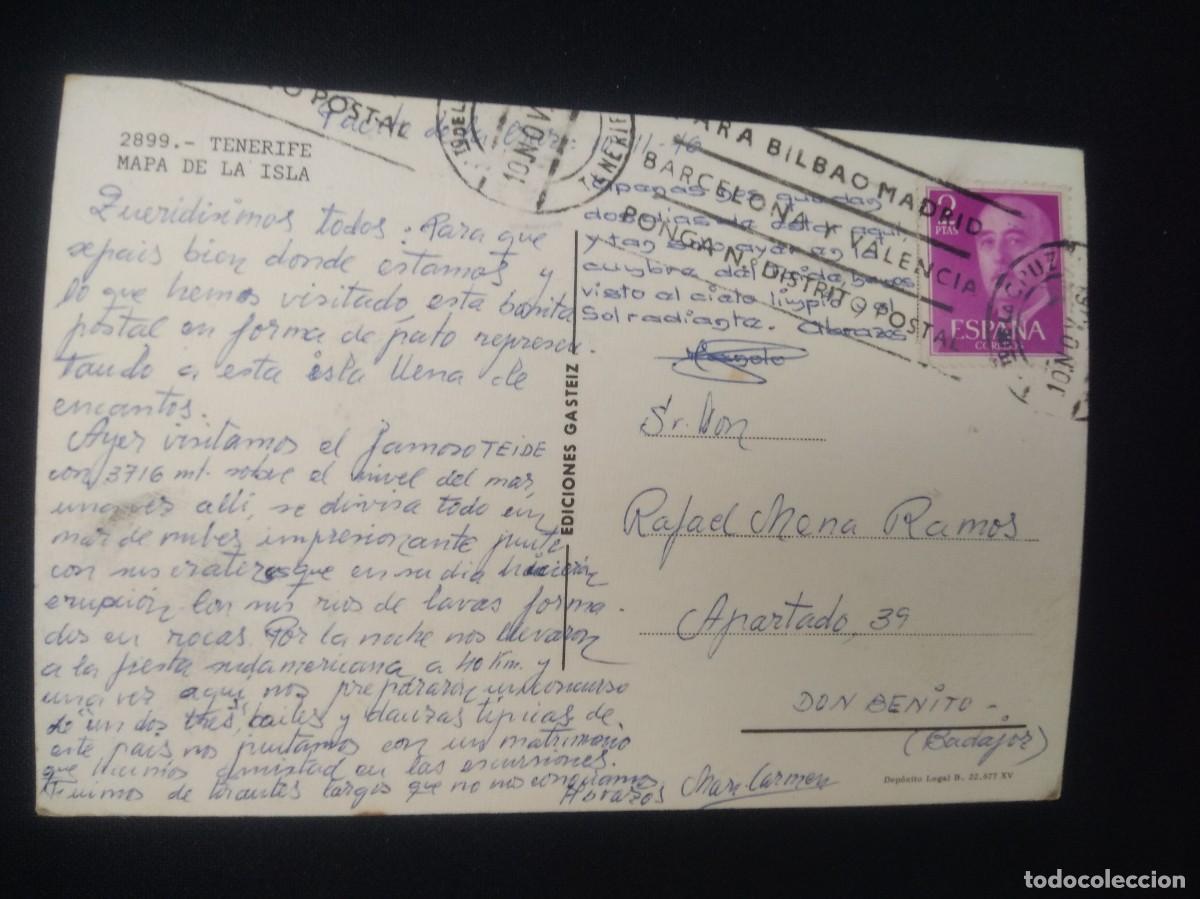 2899.- TENERIFE
MAPA DE LA ISLA
TO POSTAL
10 NOV
TENERIFE
PARA BILBAO MADRID
BARCELONA Y VALENCIA
PONGA N. DISTRITO POSTAL
Puerto de la Cruz
Queridisimos todos: Para que
sepais bien donde estamos y
lo que hemos visitado, esta bonita
postal en forma de pato represen-
tando a esta isla llena de
encantos.
Ayer visitamos el famoso TEIDE
con 3716 mt. sobre el nivel del mar,
una vez allí, se divisa todo un
mar de nubes impresionante junto
con sus crateres que en su dia hicieron
erupción con sus rios de lavas forma-
dos en rocas. Por la noche nos llevaron
a la fiesta sudamericana a 40 Km. y
una vez aqui, nos prepararon un concurso
de un dos tres, bailes y danzas tipicas de
este pais nos juntamos con un matrimonio
que hicimos amistad en las escursiones.
de tirantes largos que no nos
Abrazos Mari Carmen
apenas nos quedan
dos dias de estar aqui,
y tan solo ayer en la
cumbre del Teide, hemos
visto el cielo limpio y el
Sol radiante. Abrazos
Manolo
2 PTAS
ESPAÑA
CORREOS
10 NOV
EDICIONES GASTEIZ
Sr. Don
Rafael Mena Ramos
Apartado, 39
DON BENITO -
(Badajoz)
Depósito Legal B. 22.577 XV
todocoleccion